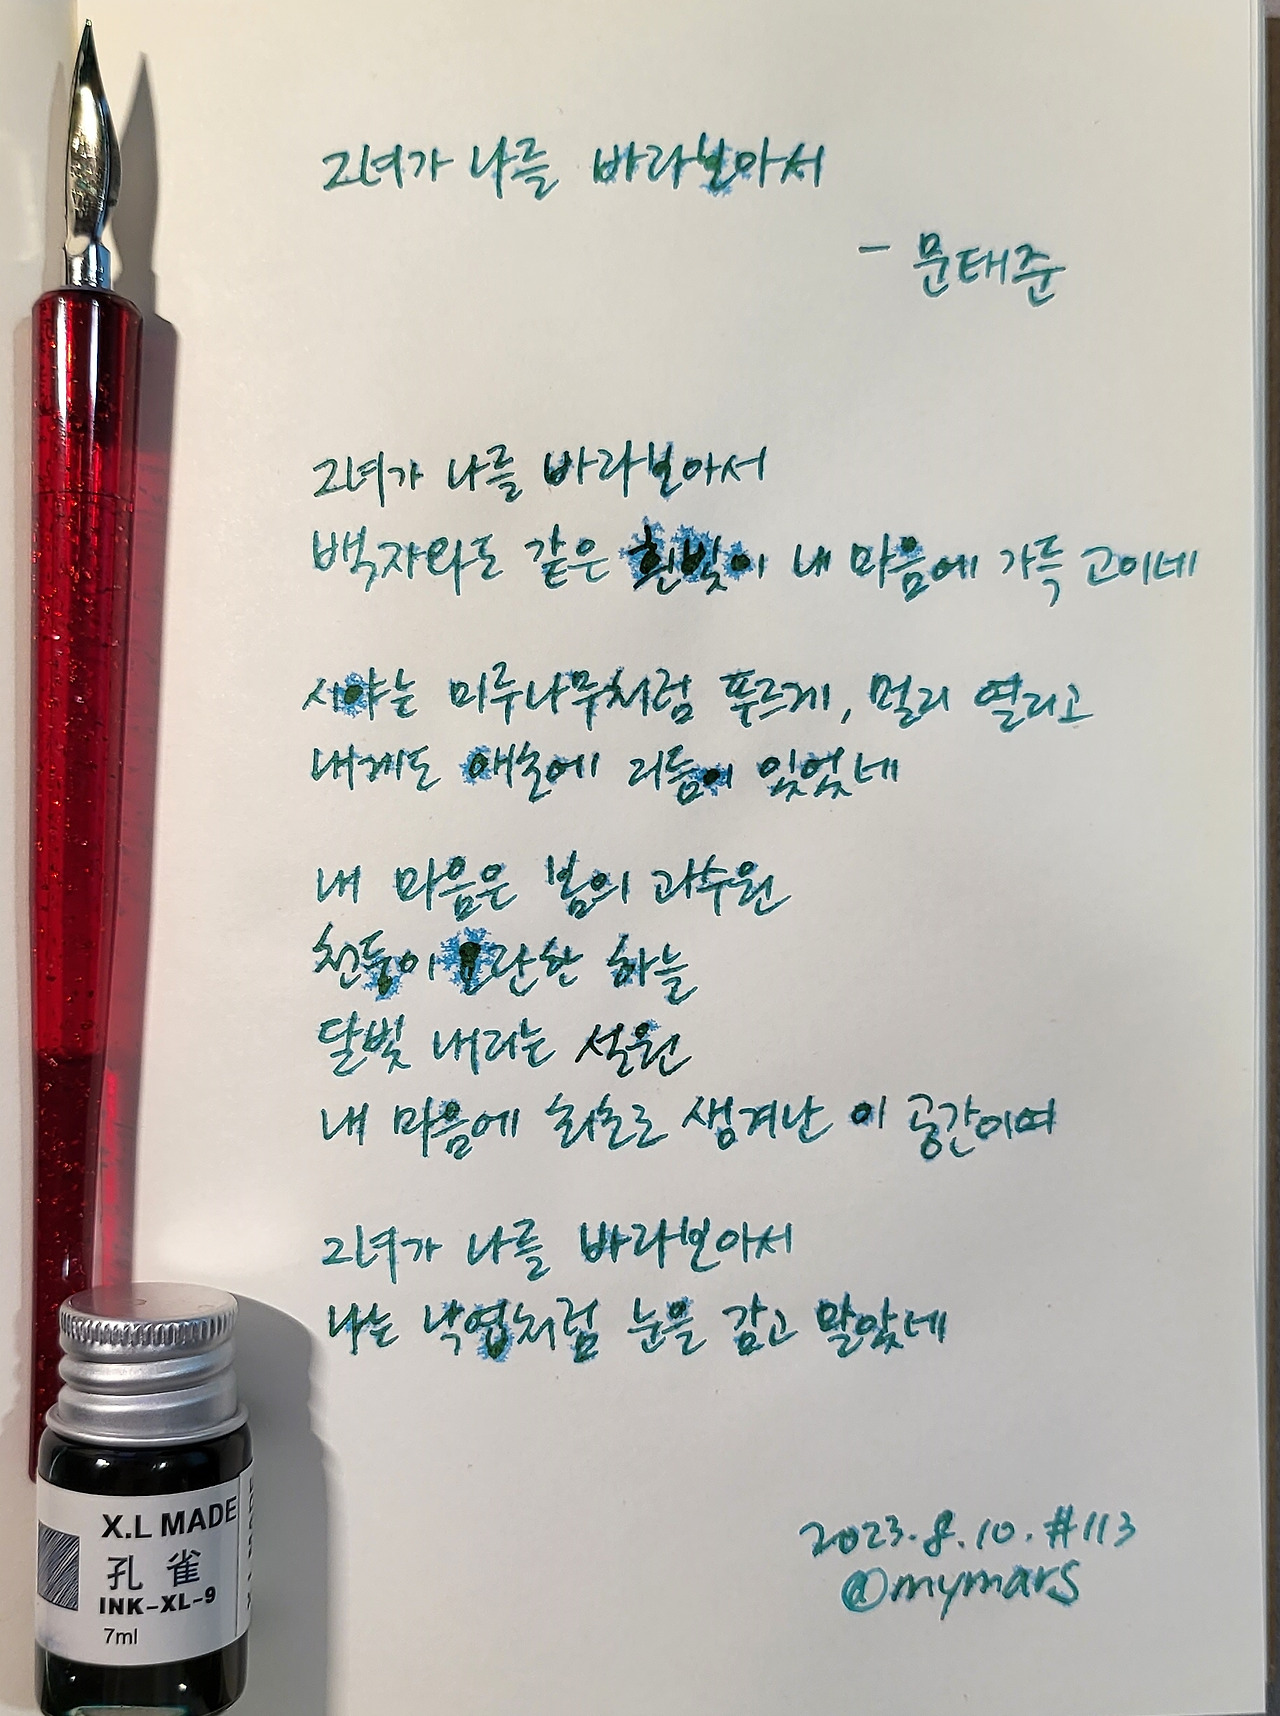 그녀가 나를 바라보아서
- 문태준
그녀가 나를 바라보아서
백자와도 같은 흰빛이 내 마음에 가득 고이네
시야는 미루나무처럼 푸르게, 멀리 열리고
내게도 애초에 리듬이 있었네
내 마음은 봄의 과수원
천둥이 요란한 하늘
달빛 내리는 설원
내 마음에 최초로 생겨난 이 공간이여
그녀가 나를 바라보아서
나는 낙엽처럼 눈을 감고 말았네
2023.8.10. #113
@mymars
X.L MADE
孔雀
INK-XL-9
7ml